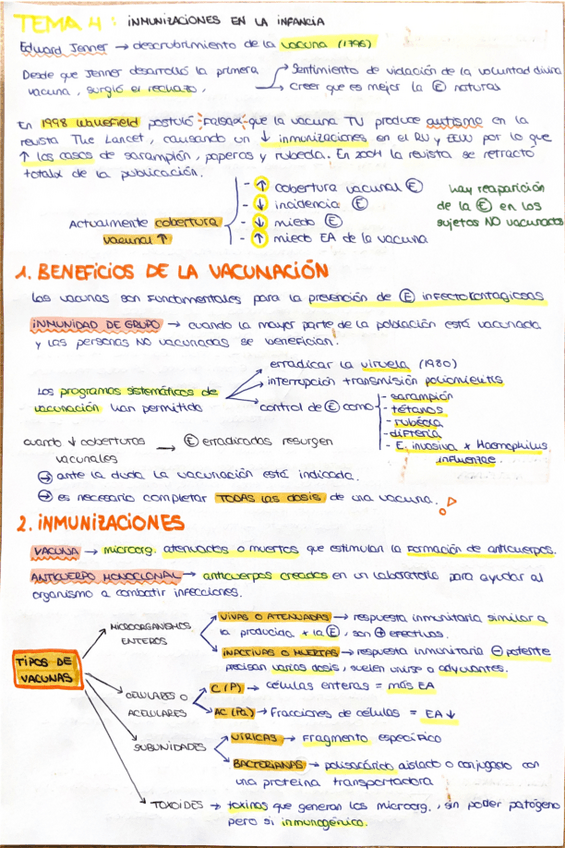 TEMA 4: INMUNIZACIONES EN LA INFANCIA
Eduard Jenner → descubrimiento de la vacuna (1796)
Desde que Jenner desarrolló la primera vacuna, surgió el rechazo,
→ Sentimiento de violación de la voluntad divina
→ Creer que es mejor la Ⓔ natural
En 1998 Wakefield postuló falsa// que la vacuna TV produce autismo en la
revista The Lancet, causando un ↓ inmunizaciones en el RU y EEUU por lo que
↑ los casos de sarampión, paperas y rubeola. En 2004 la revista se retractó
total// de la publicación.
Actualmente cobertura vacunal ↑
- ↑ cobertura vacunal Ⓔ
- ↓ incidencia Ⓔ
- ↓ miedo Ⓔ
- ↑ miedo EA de la vacuna
hay reaparición
de la Ⓔ en los
sujetos NO vacunados
1. BENEFICIOS DE LA VACUNACIÓN
Las vacunas son fundamentales para la prevención de Ⓔ infectocontagiosas
INMUNIDAD DE GRUPO → cuando la mayor parte de la población está vacunada
y las personas NO vacunadas se benefician.
Los programas sistemáticos de
vacunación han permitido
erradicar la viruela (1980)
interrupción transmisión poliomielitis
control de Ⓔ como
- sarampión
- tétanos
- rubéola
- difteria
- E. invasiva x Haemophilus
influenzae.
cuando ↓ coberturas
vacunales
→ Ⓔ erradicadas resurgen
→ ante la duda la vacunación está indicada.
→ es necesario completar TODAS las dosis de una vacuna.
2. INMUNIZACIONES
VACUNA → microorg. atenuados o muertos que estimulan la formación de anticuerpos.
ANTICUERPO MONOCLONAL → anticuerpos creados en un laboratorio para ayudar al
organismo a combatir infecciones.
TIPOS DE
VACUNAS
MICROORGANISMOS
ENTEROS
VIVAS O ATENUADAS → respuesta inmunitaria similar a
la producida x la Ⓔ, son ⊕ efectivas.
INACTIVAS O MUERTAS → respuesta inmunitaria ⊖ potente
precisan varias dosis, suelen unirse a adyuvantes.
CELULARES O
ACELULARES
C (P) → células enteras = más EA
AC (Pa) → Fracciones de células = EA ↓
SUBUNIDADES
VÍRICAS → Fragmento específico
BACTERIANAS → polisacárido aislado o conjugado con
una proteína transportadora
TOXOIDES → toxinas que generan los microorg., sin poder patógeno
pero si inmunogénico.